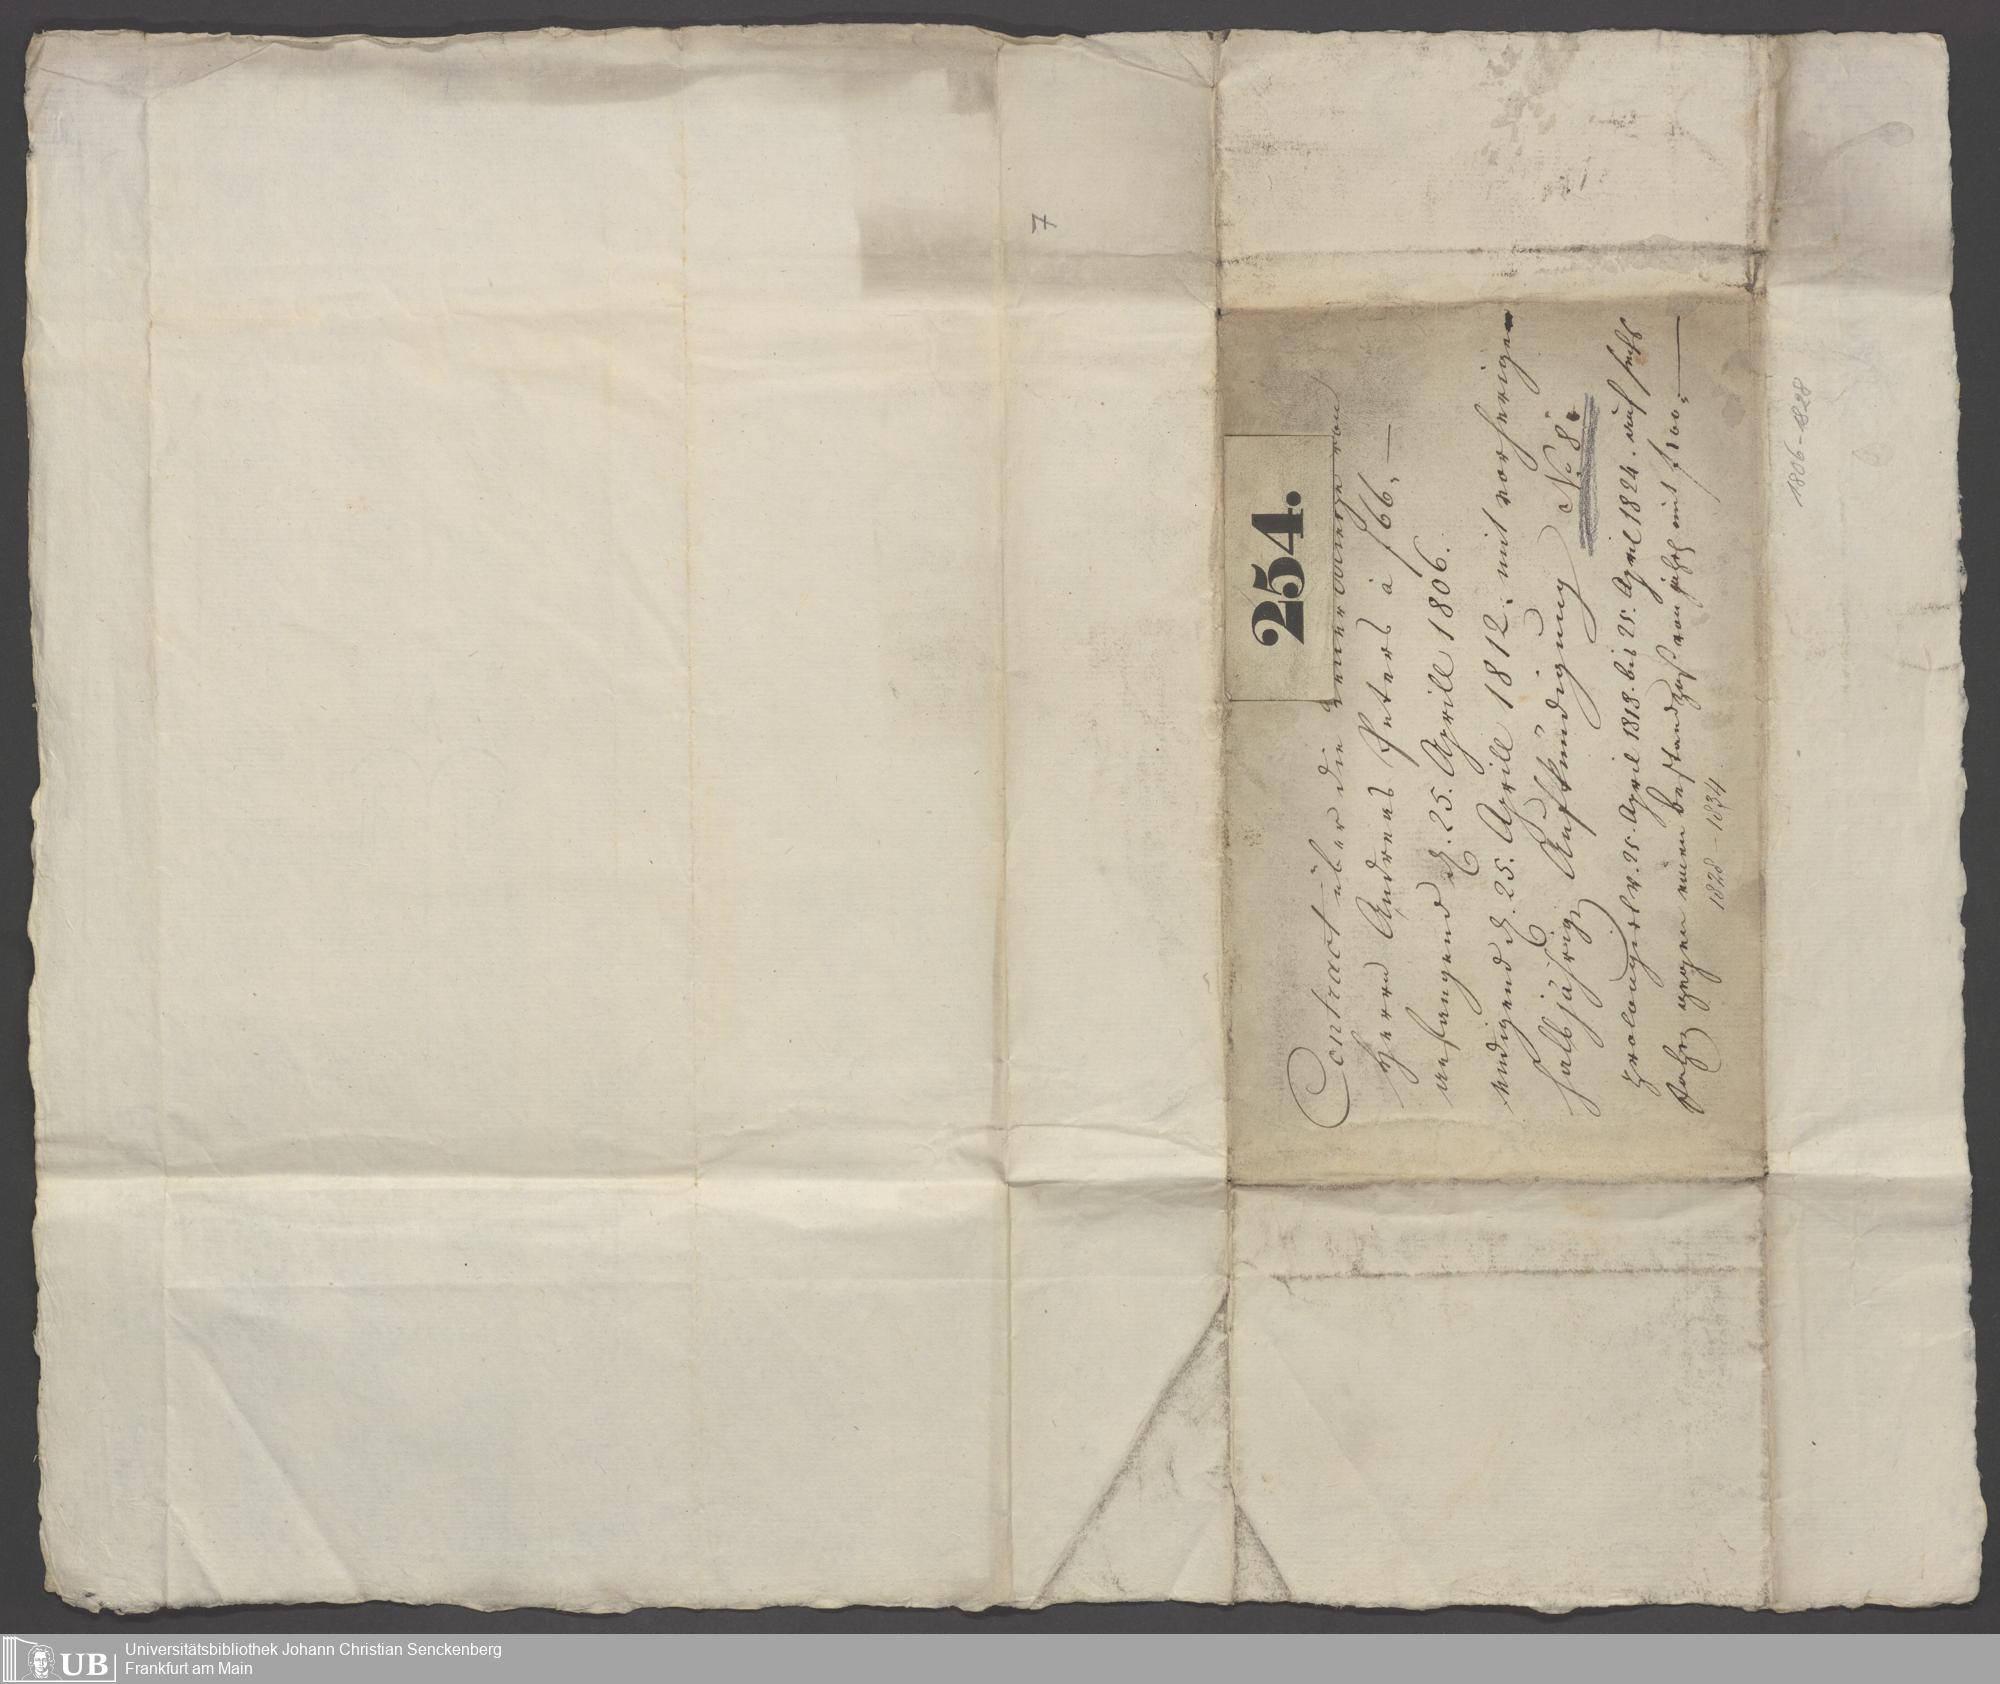 7
254.
Contract über die
Herrn Andreas Peters à f 66,—
anfangend d. 25. Aprill 1806.
endigend d. 25. Aprill 1812. mit vorheriger
halbjährige Aufkündigung No 8.
prolongirt v. 25. April 1818. bis 25. April 1824. auf sechs
Jahre gegen einen Bestandzinß von jährl. mit f 100,—
1828 – 1834
1806-1828
Universitätsbibliothek Johann Christian Senckenberg
Frankfurt am Main
UB